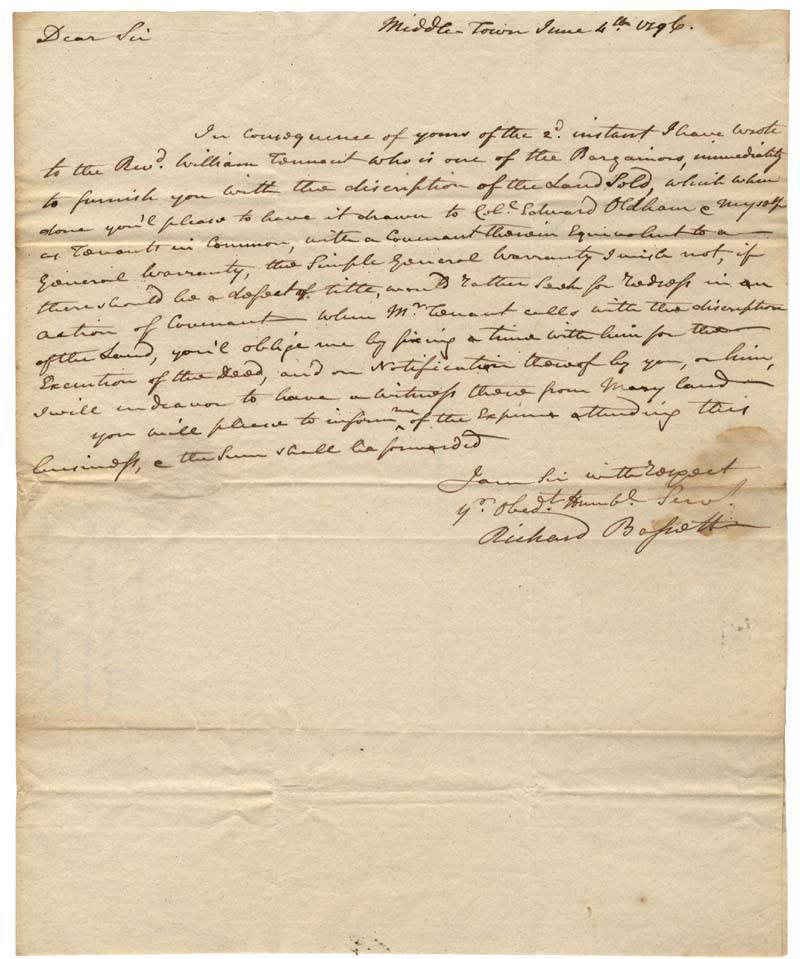 Middle-Town June 4th. 1796.
Dear Sir
In consequence of yours of the 2d. instant I have wrote
to the Revd. William Tennant who is one of the Bargainors, immediately
to furnish you with the discription of the Land Sold, which when
done you'l please to have it drawn to Colo. Edward Oldham & myself
as Tenants in Common, with a Covenant therein Equivolent to a
General Warranty, the Simple General Warranty I wish not, if
there shou'd be a defect of title, wou'd rather Seek for redress in an
action of Covenant when Mr. Tenant calls with the discription
of the Land, you'l oblige me by fixing a time with him for the
Execution of the Deed, and on Notification thereof by you, or him,
I will indeavor to have a witness there from Maryland
you will please to inform me of the Expence attending this
business, & the Sum shall be forwarded
I am Sir with respect
yr. Obedt. Humbl. Servt.
Richard Bassett